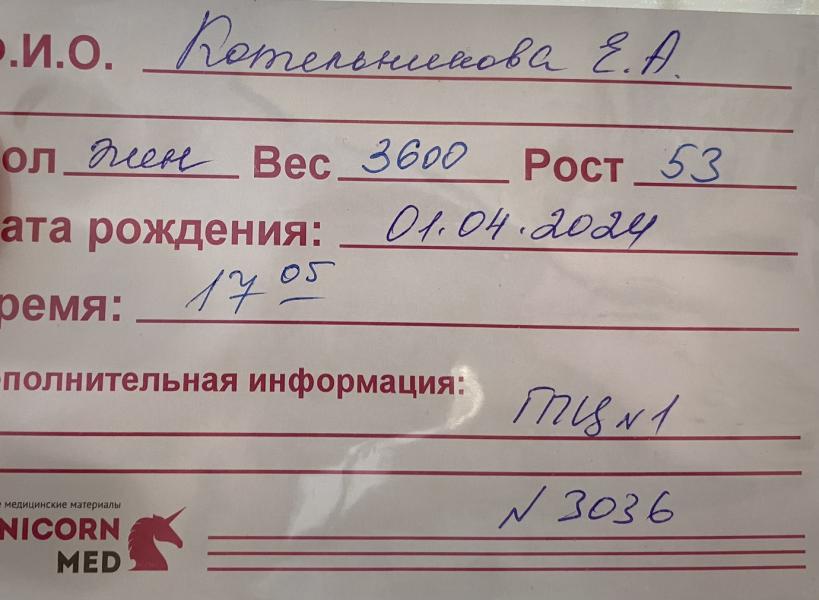 Ф.И.О. Котельникова Е.А.
ол жен Вес 3600 Рост 53
ата рождения: 01.04.2024
ремя: 17 05
полнительная информация:
ПТЦ N1
N 3036
е медицинские материалы
NICORN
MED